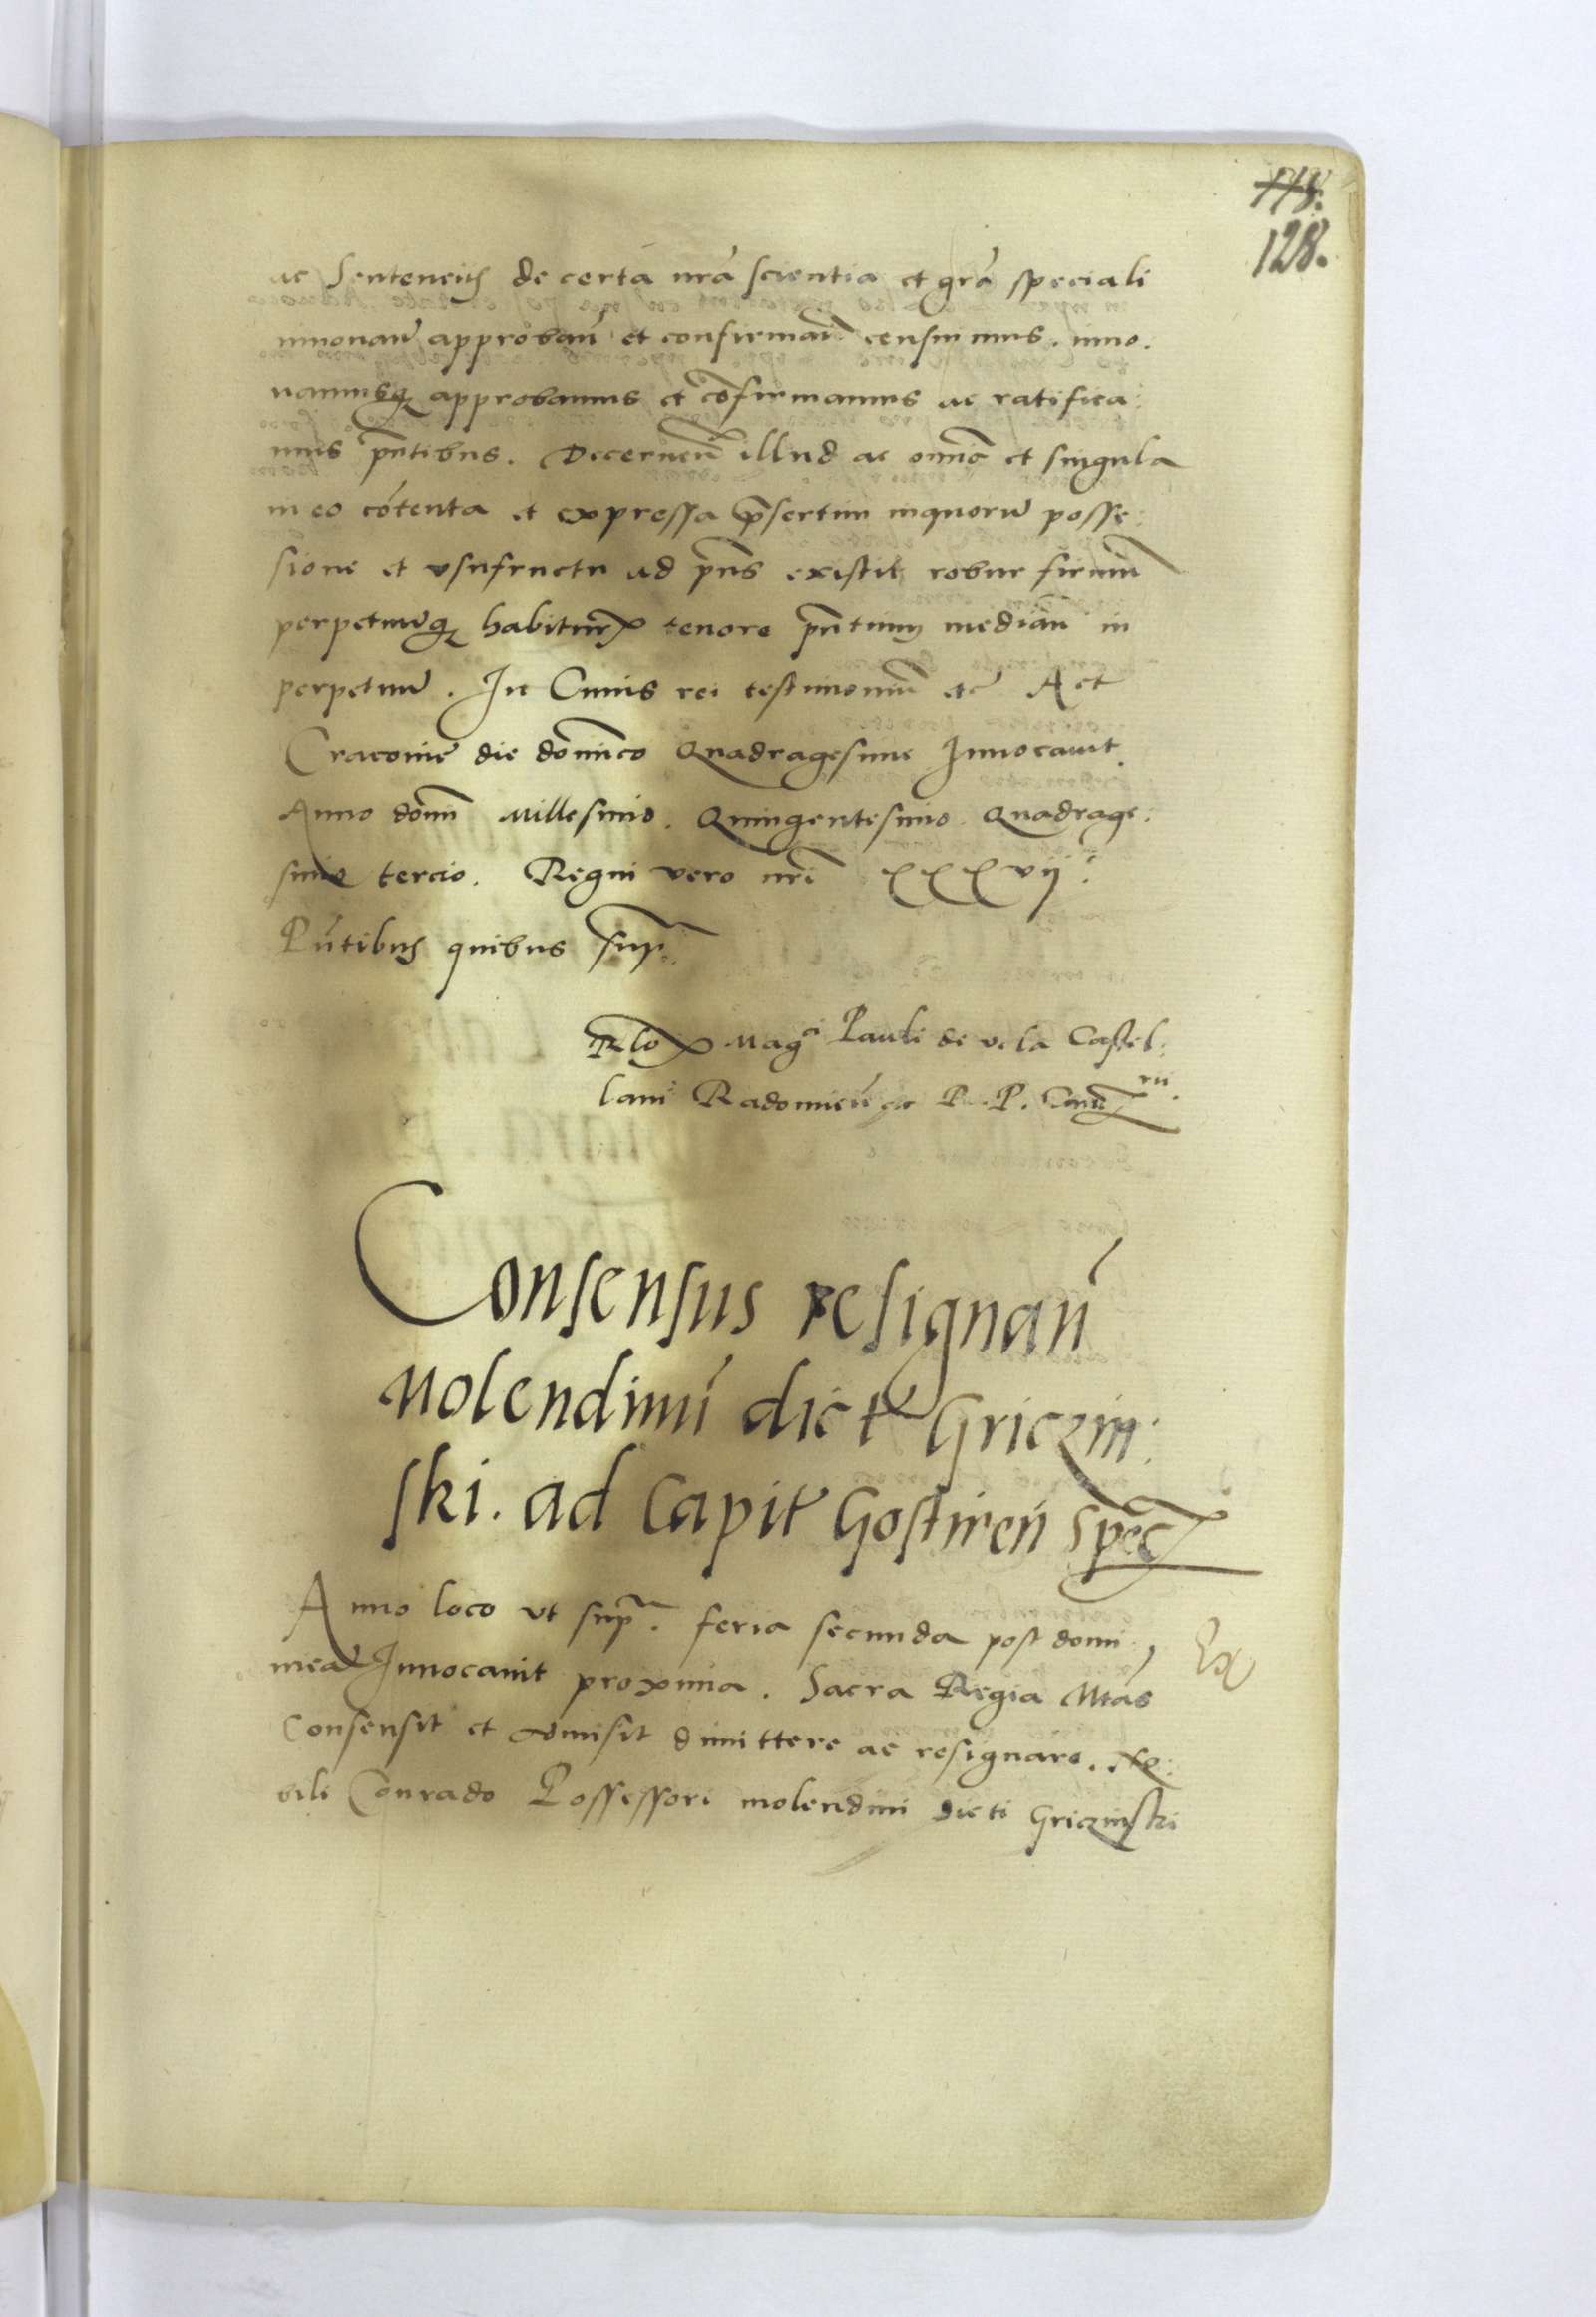 118.
128.
ac Sentencijs de certa nrã scientia et grã speciali
innouan̄ approban̄ et confirman̄ censuimus. inno.
uamusq̃ approbamus et cõfirmamus ac ratifica:
mus pñtibus. Decernen̄ illud ac omĩa et singula
in eo cõtenta et expressa p̃sertim in quorũ posse:
sione et vsufructu ad p̃ns existit robur firmũ
perpetuũq̃ habitur tenore pñtium median̄ in
perpetuũ. In Cuius rei testimoniũ etc̃ Act
Cracouie die dominico Quadragesime Inuocauit.
Anno domĩ Millesimo. Quingentesimo. Quadrage:
simo tercio. Regni vero nrĩ xxxvij.
Pñtibus quibus supr̃.
Rlo Mag.ci Pauli de vola Castel:
lani Radomień ac R. P. Canc.rii.
Consensus resignan̄
Molendinũ dict̃ Griczin:
ski. ad Capit̃ Gostinen̄ spec
Anno loco vt supr̃. feria secunda post domi:
nicã Inuocauit proxima. Sacra Regia Mtãs
Consensit et admisit dimittere ac resignare. No:
bili Conrado Possessori molendini dicti Griczinski